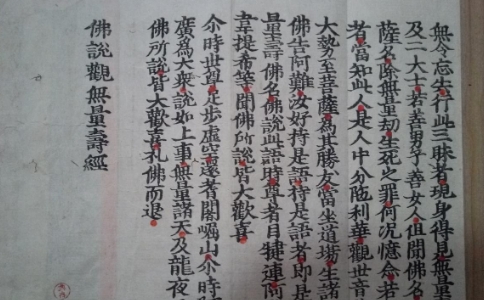 無令忘失行此三昧者現身得見無量
及二大士若善男子善女人但聞佛名
薩名除無量劫生死之罪何況憶念若
者當知此人是人中分陁利華觀世音
大勢至菩薩為其勝友當坐道場生諸
佛告阿難汝好持是語持是語者即是
量壽佛名佛說此語時尊者目犍連阿
韋提希等聞佛所說皆大歡喜
尒時世尊足步虛空還耆闍崛山尒時
廣為大衆說如上事無量諸天及龍夜
佛所說皆大歡喜礼佛而退
佛說觀無量壽經